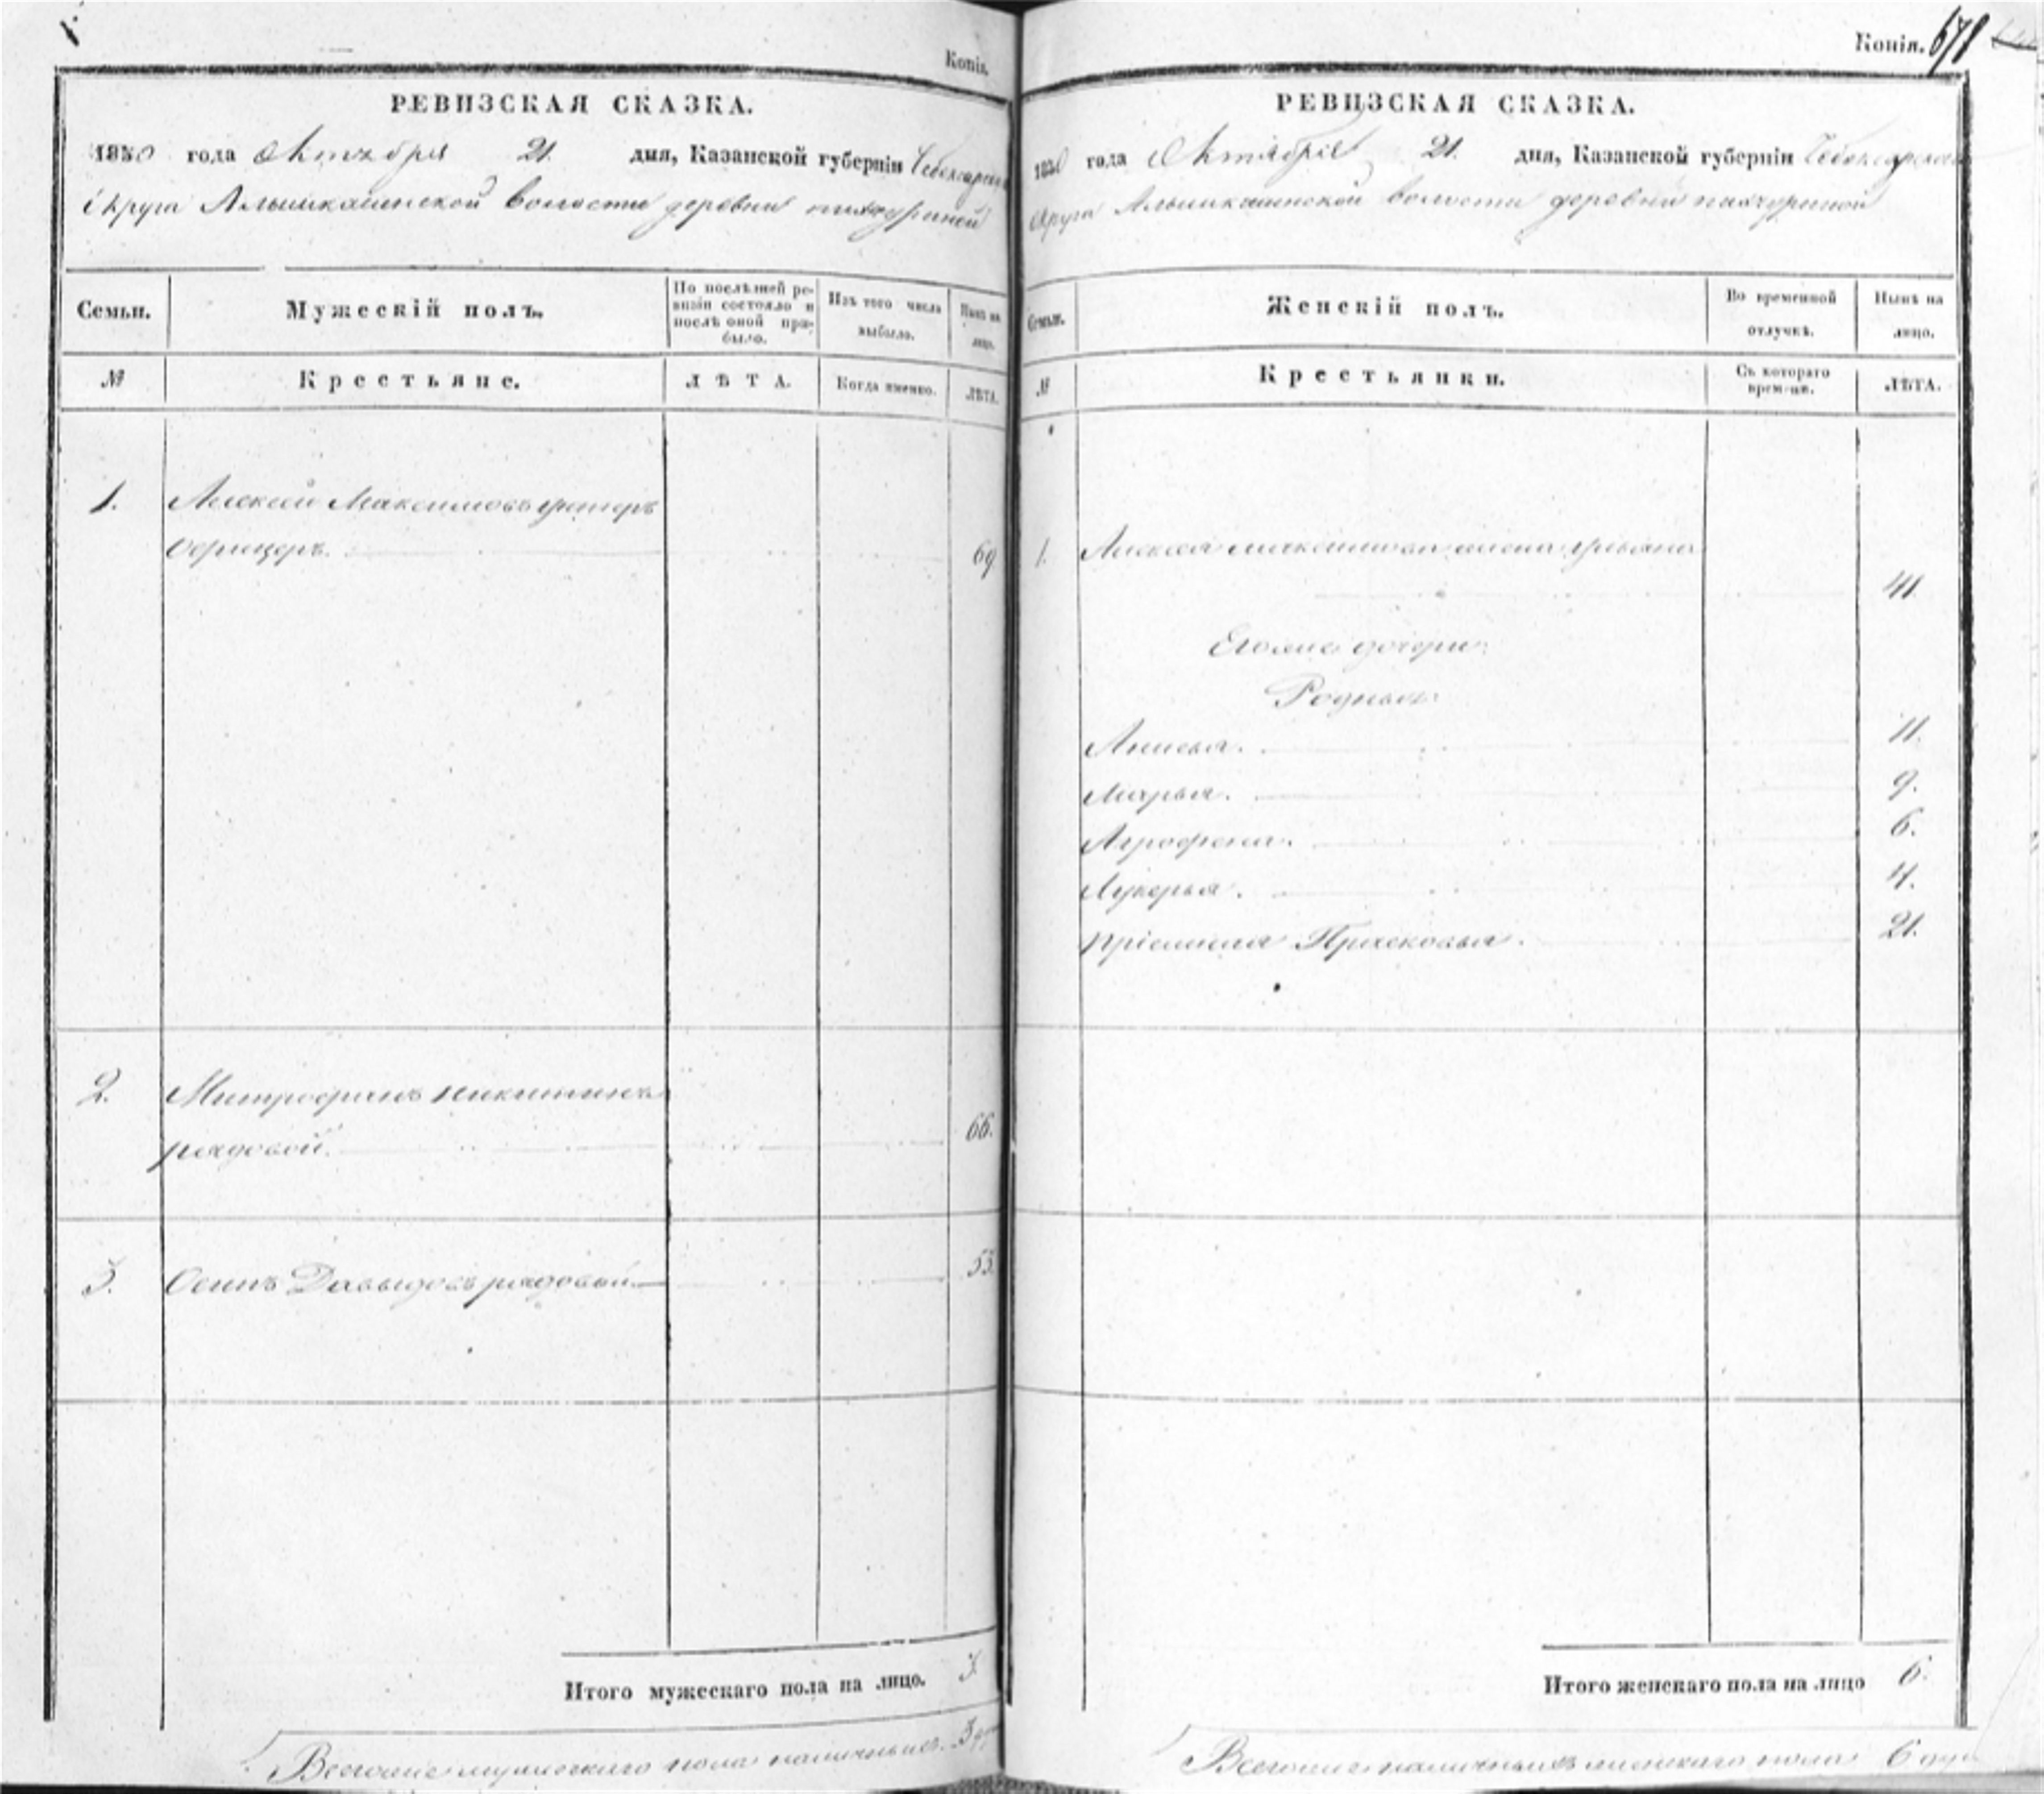 Копія.
РЕВИЗСКАЯ СКАЗКА.
1850 года Октября 21. дня, Казанской губерніи Чебоксарскаго
Округа Алымкасинской волости деревни пихтулиной
Семьи. Мужескій полъ. По послѣдней ревизіи состояло и послѣ оной прибыло. Изъ того числа выбыло. Нынѣ на лицо.
№ Крестьяне. ЛѢТА. Когда именно. ЛѢТА.
1. Алексей Максимовъ унтеръ
Офицеръ. 69
2. Митрофанъ Никитинъ
рядовой. 66.
3. Осипъ Давыдовъ рядовый 53.
Итого мужескаго пола на лицо. 3.
Всегоже мужескаго пола наличныхъ. 3
Копія. 678
РЕВИЗСКАЯ СКАЗКА.
1850 года Октября 21. дня, Казанской губерніи Чебоксарскаго
Округа Алымкасинской волости деревни
Семьи. Женскій полъ. Во временной отлучкѣ. Нынѣ на лицо.
№ Крестьянки. Съ котораго времени. ЛѢТА.
1. Алексея максимова жена ульяна
41.
Егоже дочери
Родныя
Анисья. 11.
Марья. 9.
Агрофена. 6.
Лукерья. 4.
пріемная Прасковья. 21.
Итого женскаго пола на лицо 6.
Всегоже наличныхъ женскаго пола 6